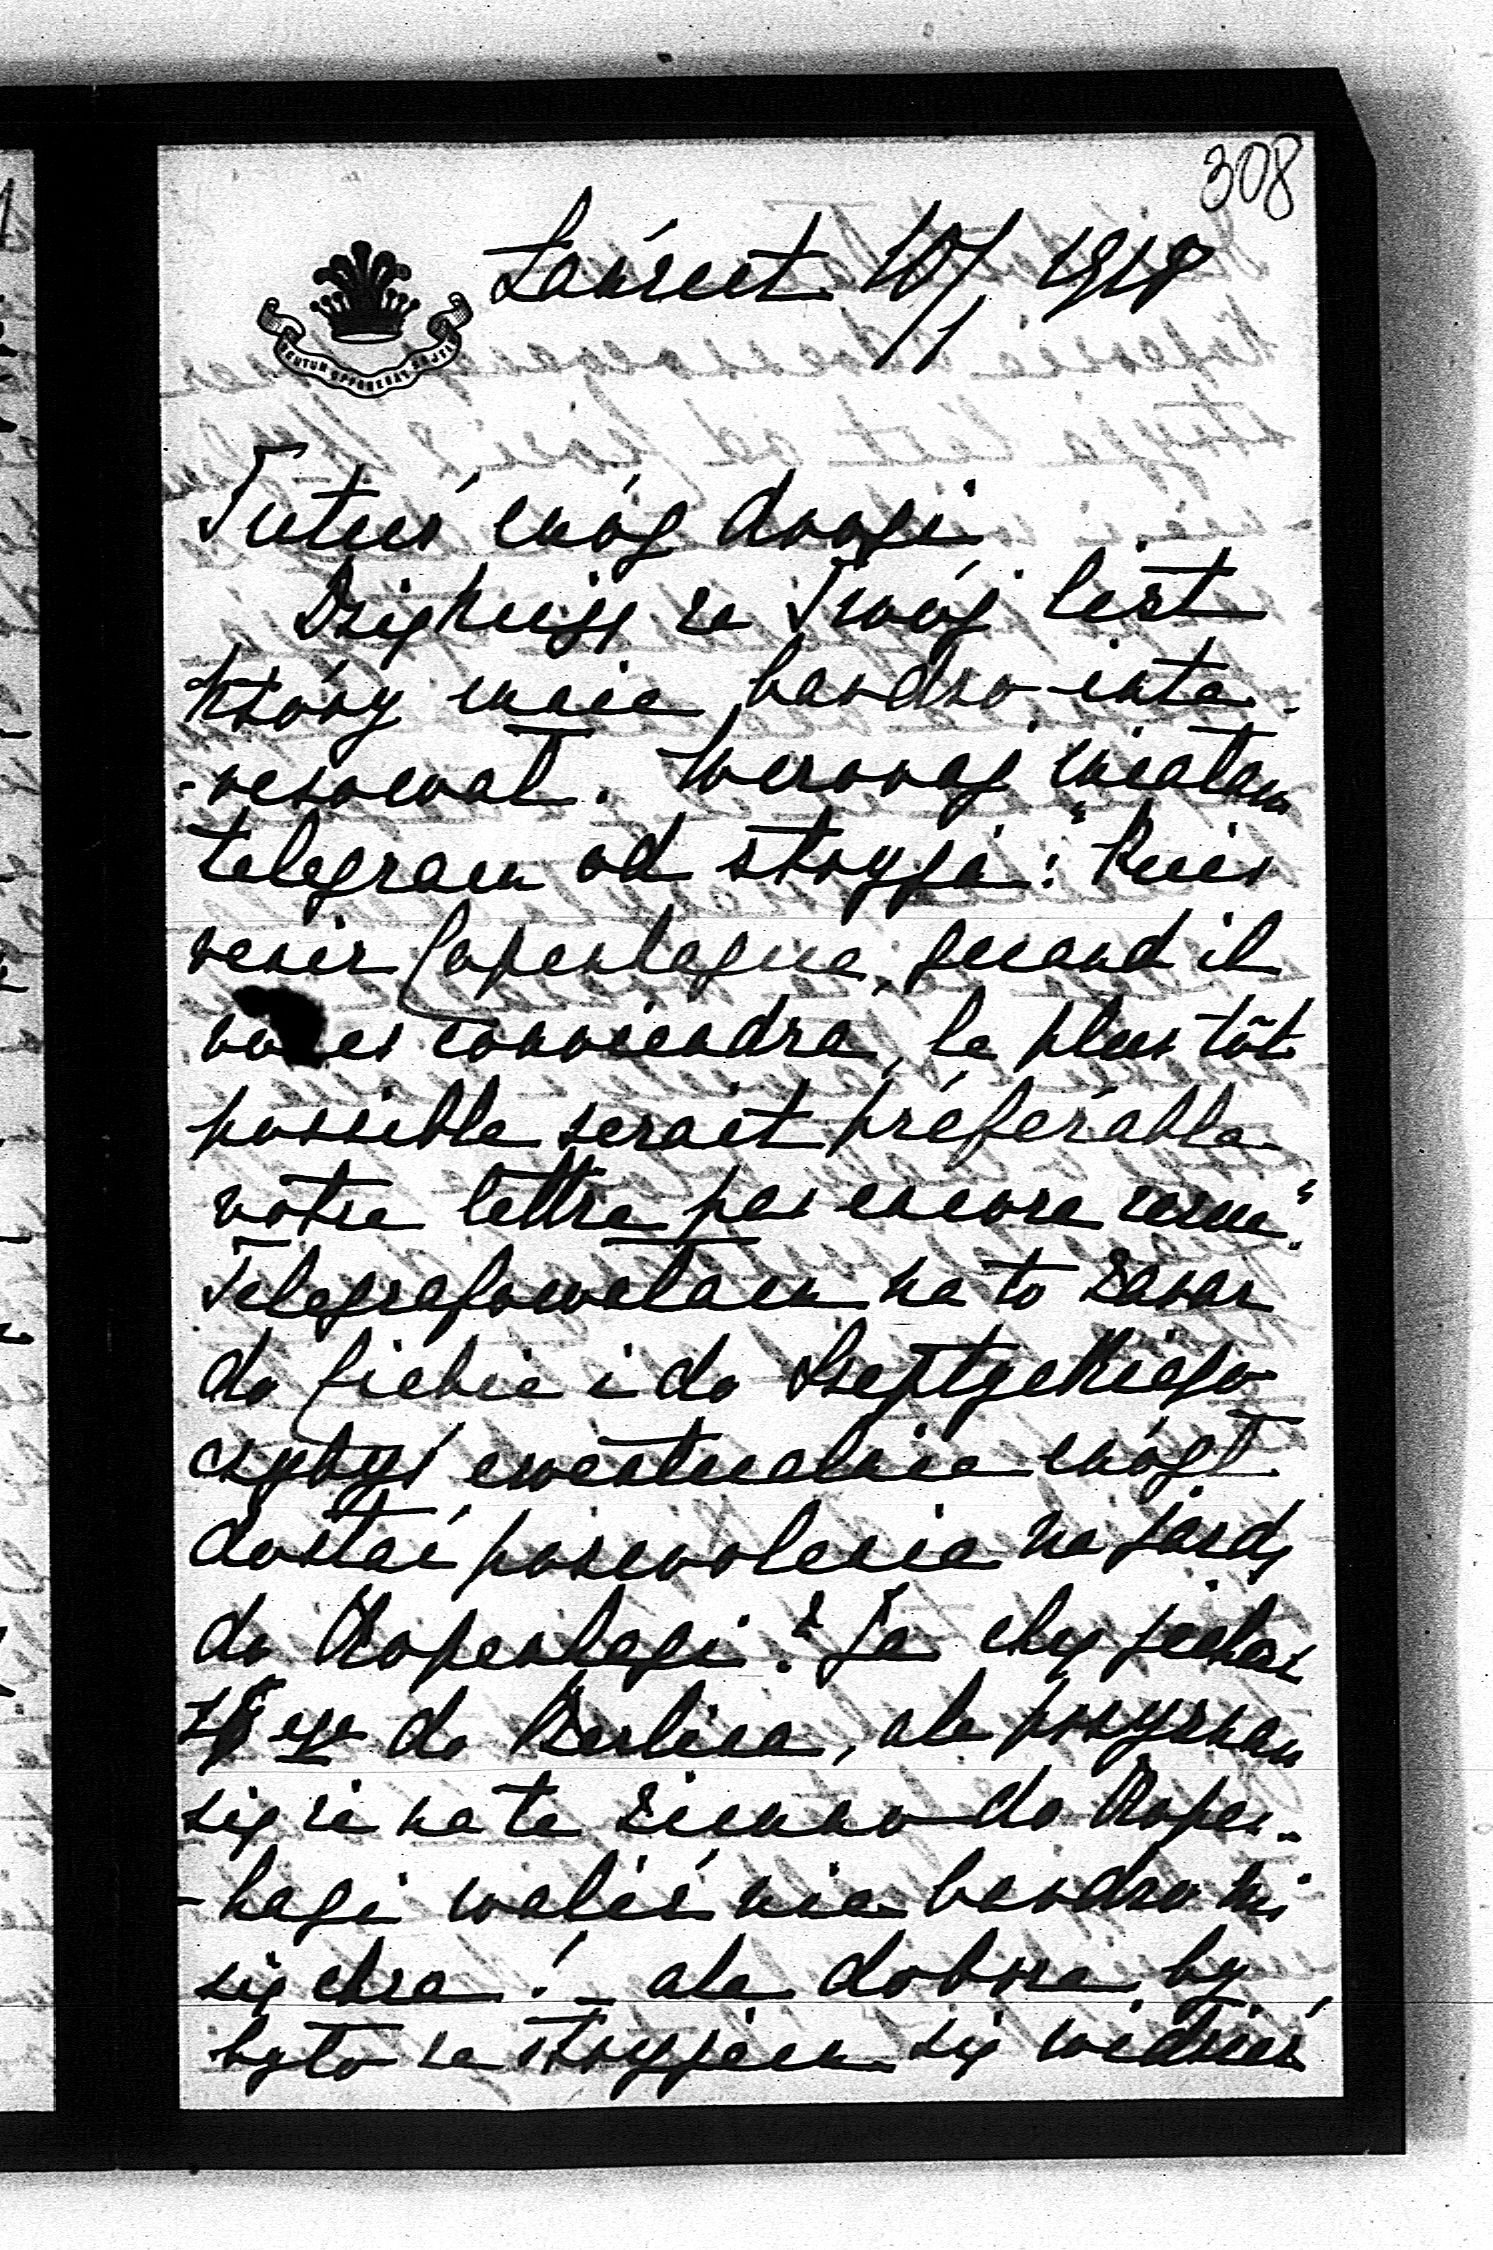 308
Łańcut 10/1 1918
Tutuś mój drogi
Dziękuję za Twój list
który mnie bardzo inte-
-resował. Wczoraj miałam
telegram od stryja: "Puis
venir Copenhague, quand il
vous conviendra, le plus tôt
possible serait préférable
votre lettre pas encore reçue".
Telegrafowałam na to zaraz
do Ciebie i do Szeptyckiego
czybyś ewentualnie mógł
dostać pozwolenie na jazdę
do Kopenhagi? Ja chcę jechać
do Berlina, ale przyznam
się że na te zimno do Kopen-
-hagi walić nie bardzo mi
się chce! – ale dobrze by
było ze stryjem się widzieć